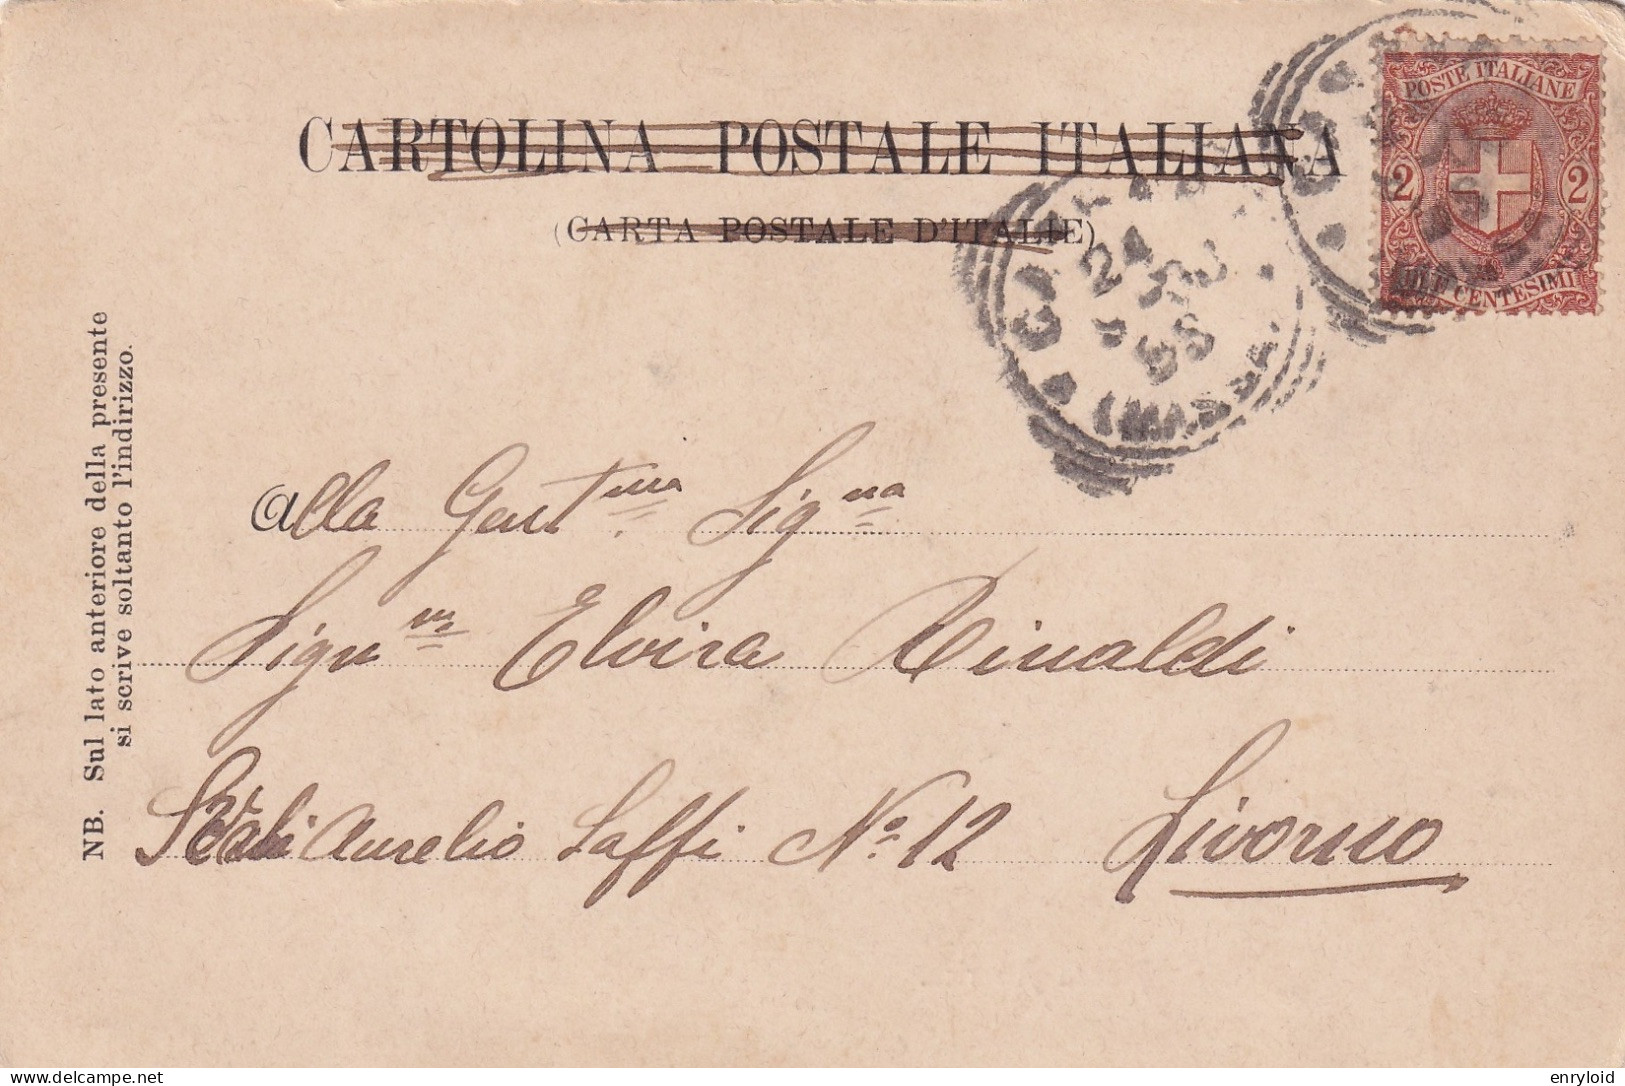 POSTE ITALIANE
2 2
DUE CENTESIMI
CARTOLINA POSTALE ITALIANA
(CARTA POSTALE D'ITALIE)
24
(MASSA)
NB. Sul lato anteriore della presente
si scrive soltanto l'indirizzo.
Alla Gent.ma Sig.na
Sign.na Elvira Rinaldi
Aurelio Saffi No. 12 Livorno
enryloid